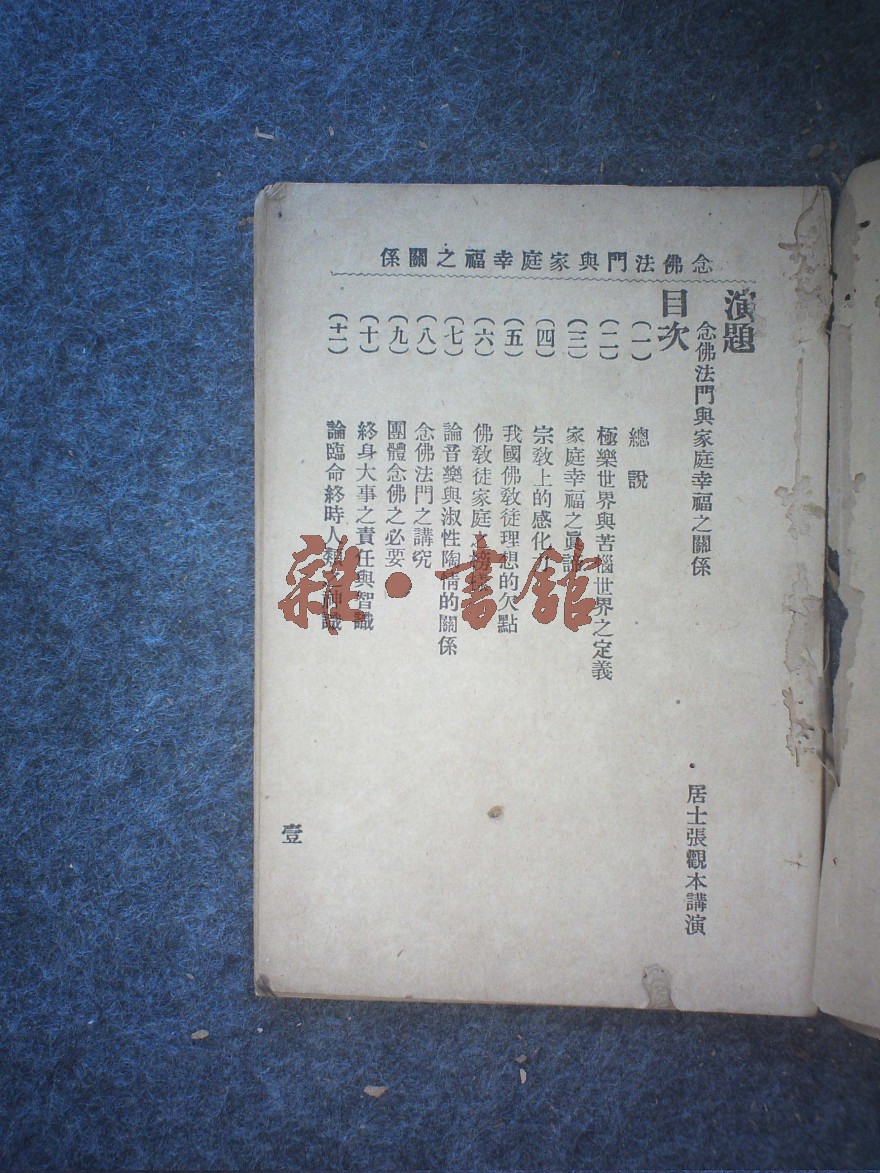 念佛法門與家庭幸福之關係
演題
念佛法門與家庭幸福之關係
居士張觀本講演
目次
(一) 總說
(二) 極樂世界與苦惱世界之定義
(三) 家庭幸福之眞
(四) 宗敎上的感化
(五) 我國佛敎徒理想的欠點
(六) 佛敎徒家庭之榜樣
(七) 論音樂與淑性陶情的關係
(八) 念佛法門之講究
(九) 團體念佛之必要
(十) 終身大事之責任與智識
(十一) 論臨命終時人類之神識
壹
雜·書館